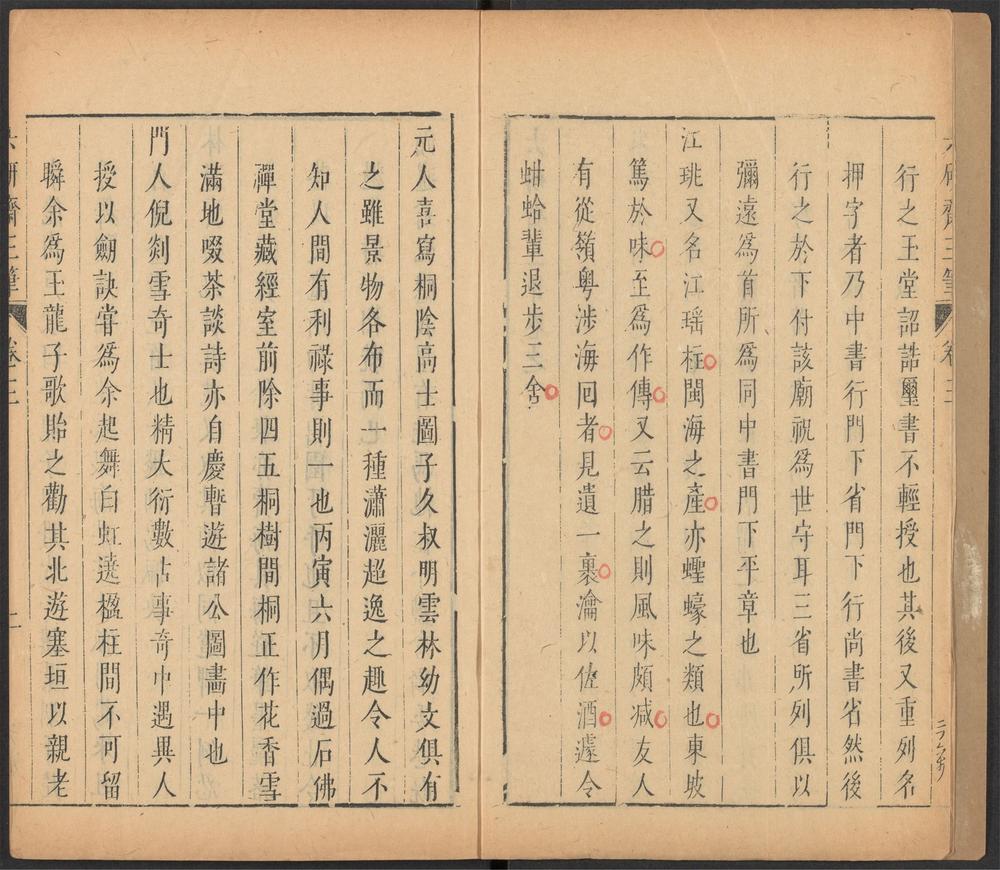 六研齋三筆 卷三
行之王堂詔誥璽書不輕授也其後又重列名
押字者乃中書行門下省門下行尚書省然後
行之於下付該廟祝爲世守耳三省所列俱以
彌遠爲首所爲同中書門下平章也
江珧又名江瑶柱閩海之產亦蟶蠔之類也東坡
篤於味至爲作傳又云腊之則風味頗减友人
有從嶺粤涉海囘者見遺一裹瀹以佐酒遽令
蚶蛤輩退步三舍
元人喜寫桐陰高士圖子久叔明雲林幼文俱有
之雖景物各布而一種瀟灑超逸之趣令人不
知人間有利祿事則一也丙寅六月偶過石佛
禪堂藏經室前除四五桐樹間桐正作花香雪
滿地啜茶談詩亦自慶暫遊諸公圖畵中也
門人倪剡雪奇士也精大衍數占事奇中遇異人
授以劒訣甞爲余起舞白虹遶楹柱間不可留
瞬余爲王龍子歌貽之勸其北遊塞垣以親老
六研齋三筆 卷三